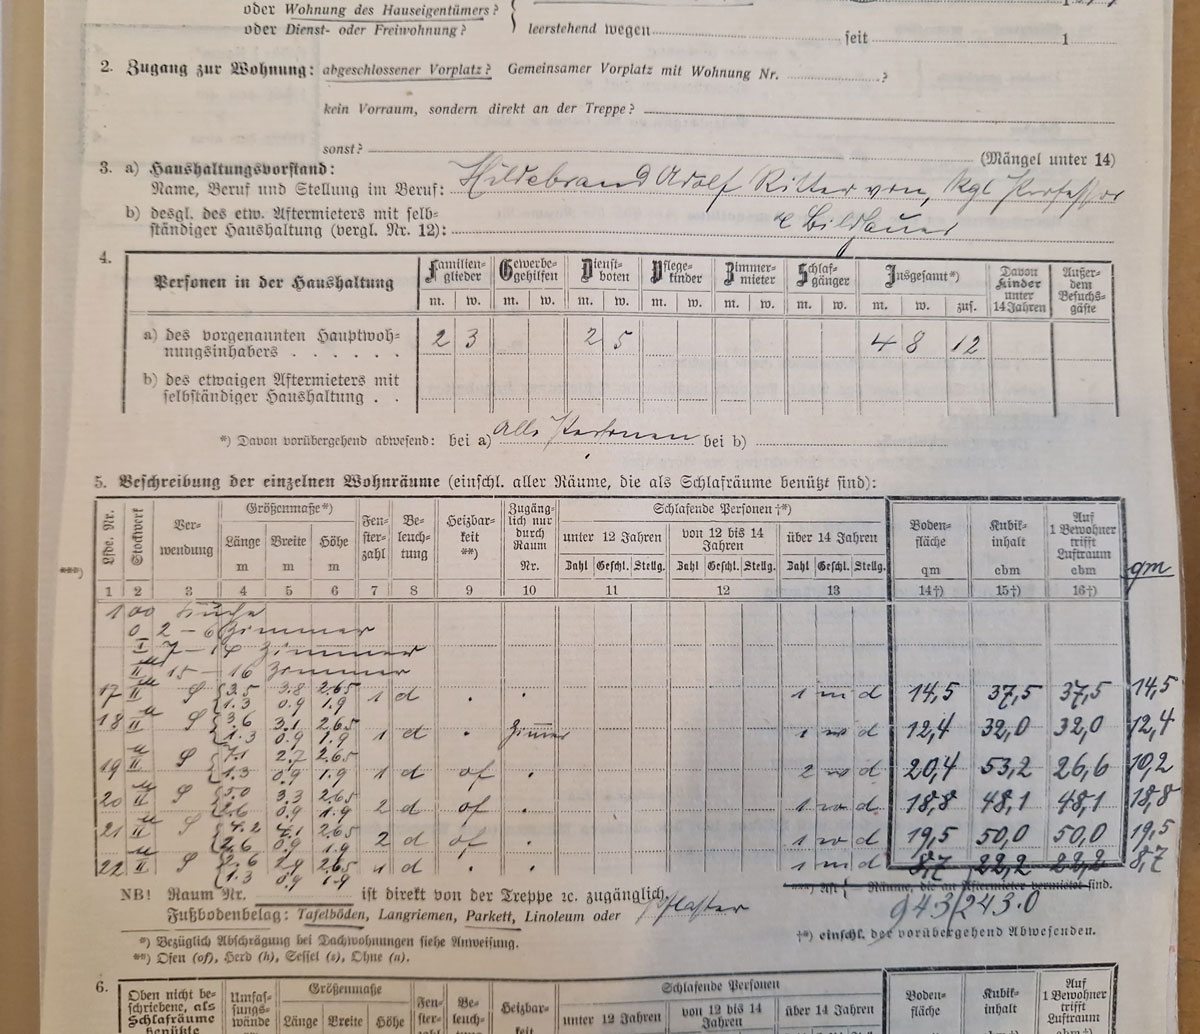 oder Wohnung des Hauseigentümers?
oder Dienst- oder Freiwohnung? leerstehend wegen seit 1
2. Zugang zur Wohnung: abgeschlossener Vorplatz? Gemeinsamer Vorplatz mit Wohnung Nr. ?
kein Vorraum, sondern direkt an der Treppe?
sonst? (Mängel unter 14)
3. a) Haushaltungsvorstand:
Name, Beruf und Stellung im Beruf: Hildebrand Adolf Ritter von, kgl Professor
b) desgl. des etw. Aftermieters mit selb-
ständiger Haushaltung (vergl. Nr. 12): & Bildhauer
4. Personen in der Haushaltung
Familien-glieder Gewerbe-gehilfen Dienst-boten Pflege-kinder Zimmer-mieter Schlaf-gänger Insgesamt*) Davon Kinder unter 14 Jahren Außer-dem Besuchs-gäste
m. w. m. w. m. w. m. w. m. w. m. w. m. w. zus.
a) des vorgenannten Hauptwoh-
nungsinhabers . . . . . . 2 3 2 5 4 8 12
b) des etwaigen Aftermieters mit
selbständiger Haushaltung . .
*) Davon vorübergehend abwesend: bei a) Alle Personen bei b)
5. Beschreibung der einzelnen Wohnräume (einschl. aller Räume, die als Schlafräume benützt sind):
***) Lfde. Nr. Stockwerk Ver-wendung Größenmaße*) Fen-ster-zahl Be-leuch-tung Heizbar-keit **) Zugäng-lich nur durch Raum Nr. Schlafende Personen †*) Boden-fläche qm Kubik-inhalt cbm Auf 1 Bewohner trifft Luftraum cbm qm
Länge m Breite m Höhe m unter 12 Jahren von 12 bis 14 Jahren über 14 Jahren
Zahl Geschl. Stellg. Zahl Geschl. Stellg. Zahl Geschl. Stellg.
1 2 3 4 5 6 7 8 9 10 11 12 13 14†) 15†) 16†)
1 00 Küche
0 2 – 6 Zimmer
I 7 – 14 Zimmer
II 15 – 16 Zimmer
17 II S 3.5 3.8 2.65 1 d . . 1 m d 14,5 37,5 37,5 14,5
1.3 0.9 1.9
18 II S 3.6 3.1 2.65 1 d . Zimmer 1 w d 12,4 32,0 32,0 12,4
1.3 0.9 1.9
19 II S 7.1 2.7 2.65 1 d of . 2 w d 20,4 53,2 26,6 10,2
1.3 0.9 1.9
20 II S 5.0 3.3 2.65 2 d of . 1 w d 18,8 48,1 48,1 18,8
2.6 0.9 1.9
21 II S 4.2 4.1 2.65 2 d of . 1 w d 19,5 50,0 50,0 19,5
2.6 0.9 1.9
22 II S 2.6 2.9 2.65 1 d . . 1 m d 8,7 22,2 22,2 8,7
1.3 0.9 1.9
NB! Raum Nr. ist direkt von der Treppe zc. zugänglich. Räume, die an Aftermieter vermietet sind.
Fußbodenbelag: Tafelböden, Langriemen, Parkett, Linoleum oder Pflaster 943/243.0
*) Bezüglich Abschrägung bei Dachwohnungen siehe Anweisung. †*) einschl. der vorübergehend Abwesenden.
**) Ofen (of), Herd (h), Sessel (s), Ohne (n).
6. Oben nicht be-schriebene, als Schlafräume benützte Umfas-sungs-wände Größenmaße Fen-ster-zahl Be-leuch- Heizbar-keit Schlafende Personen Boden-fläche Kubik-inhalt Auf 1 Bewohner trifft Luftraum
Länge Breite Höhe unter 12 Jahren von 12 bis 14 Jahren über 14 Jahren